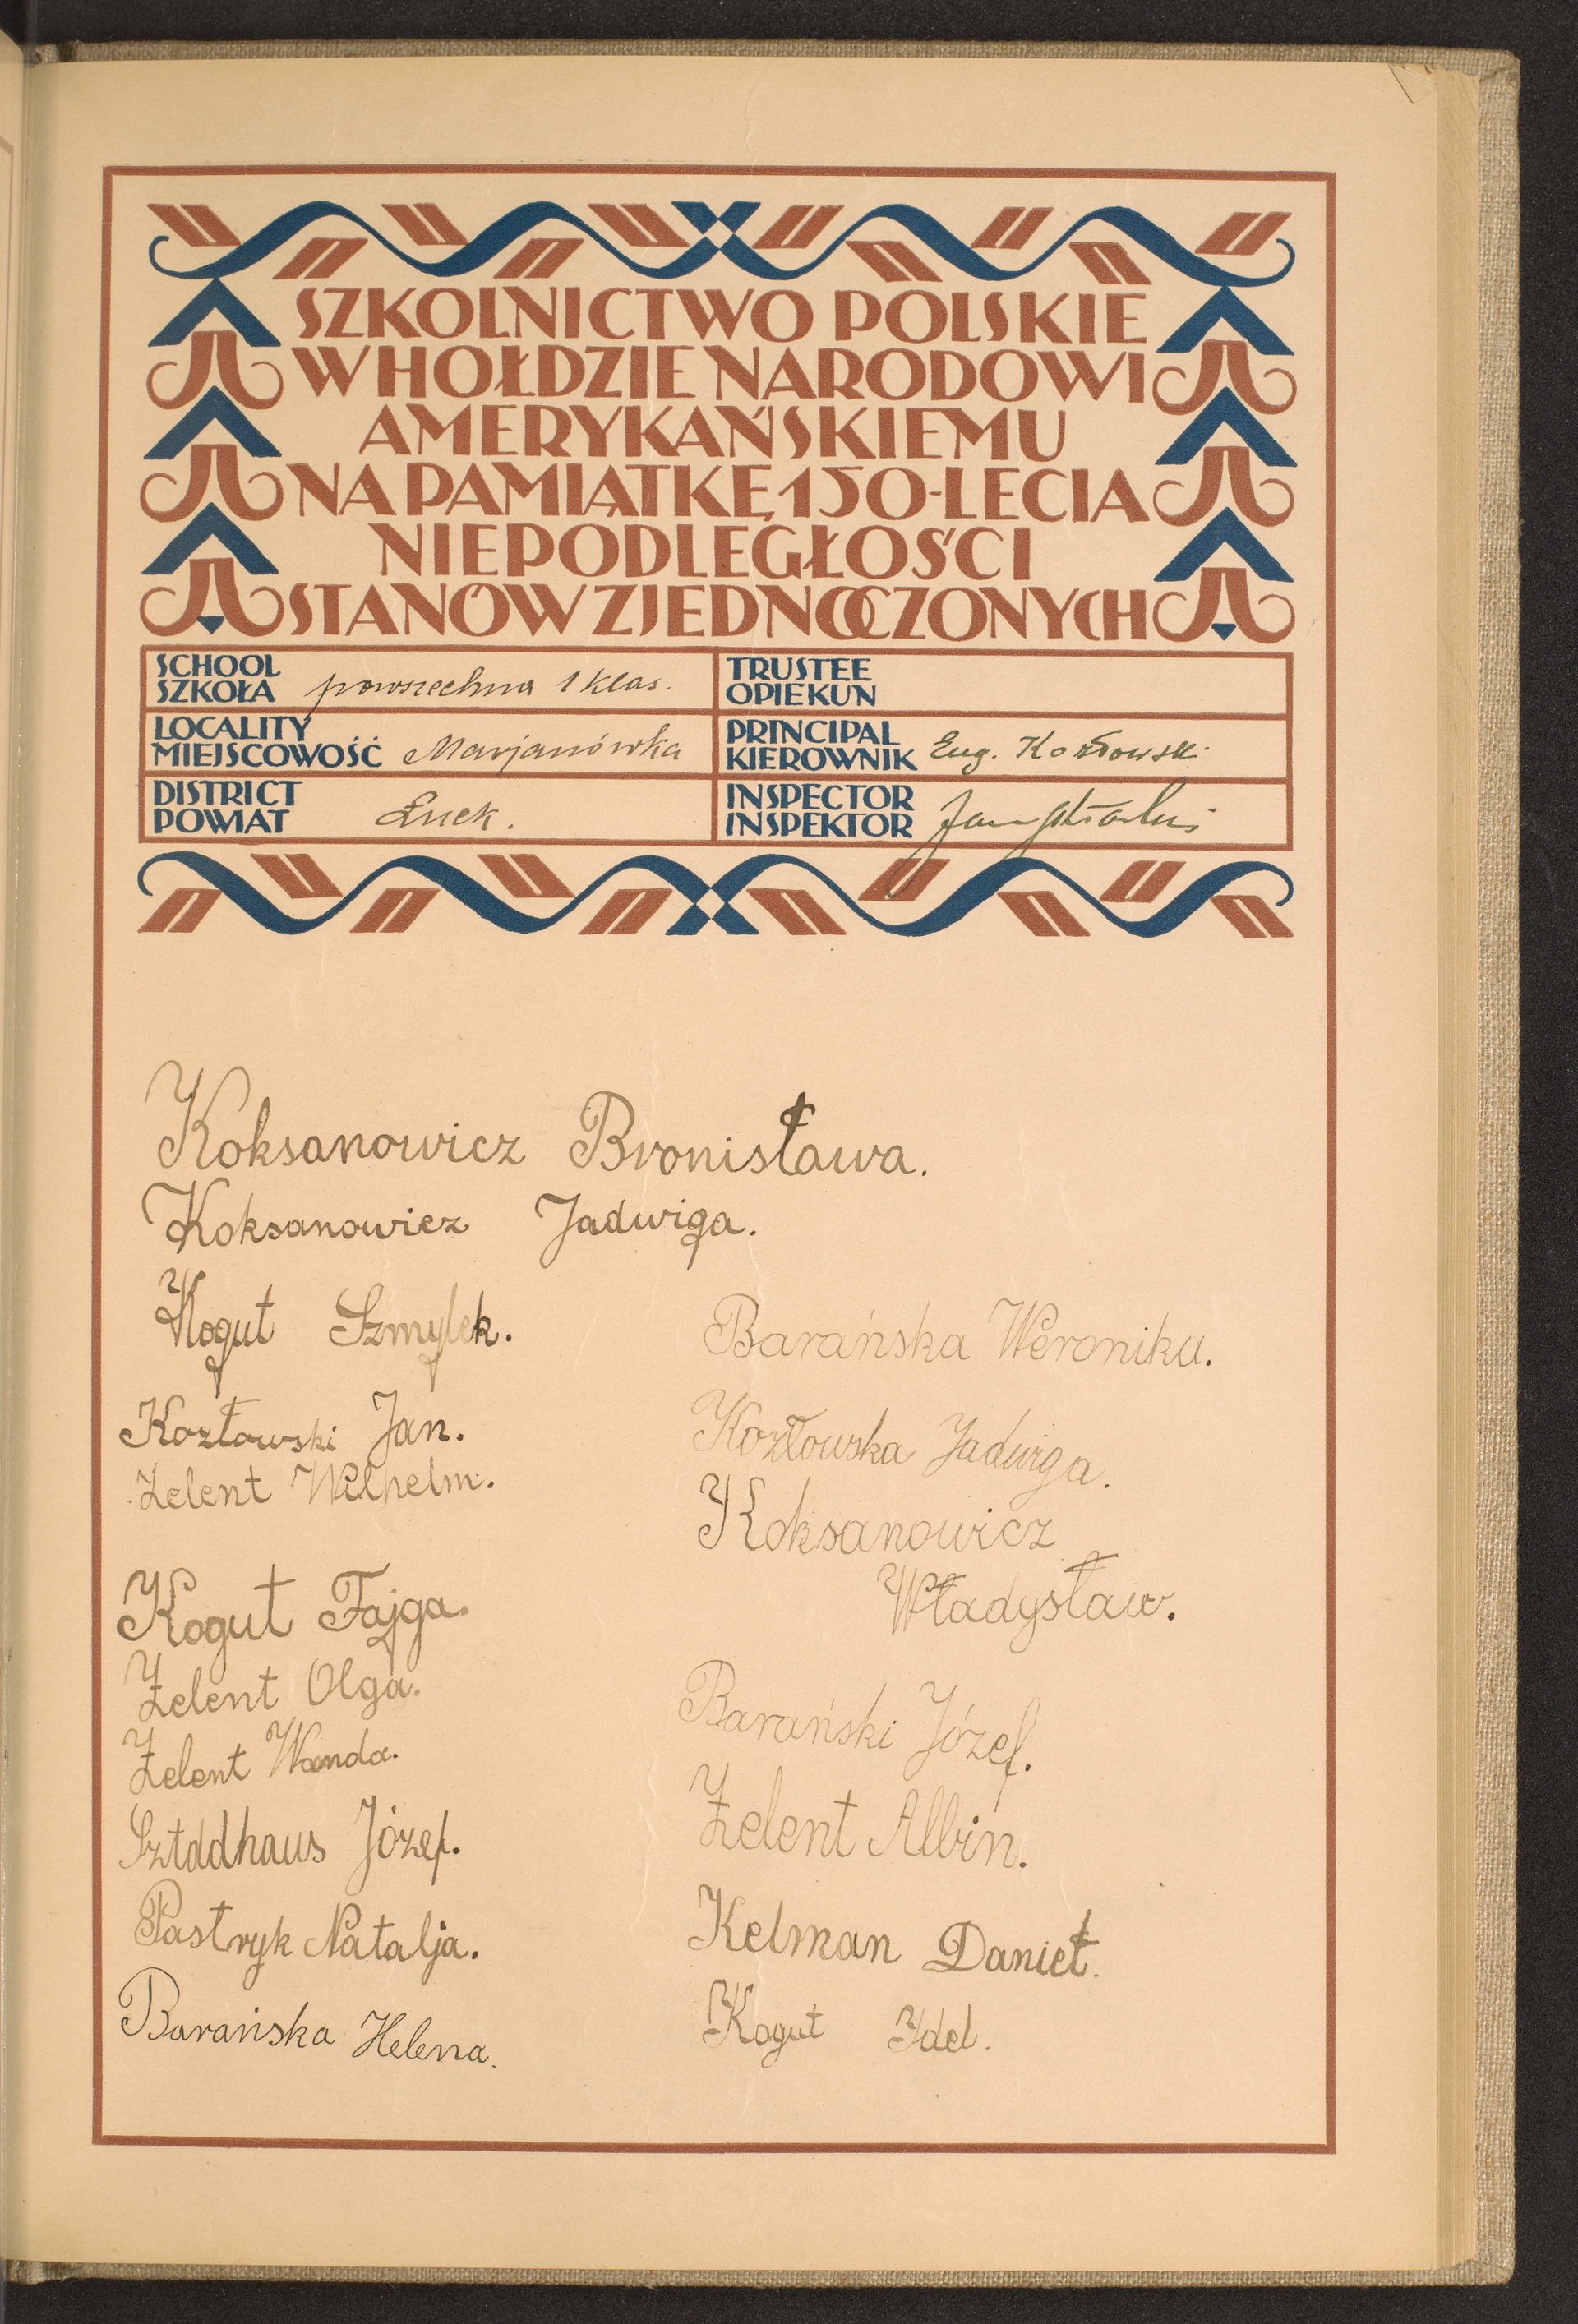 SZKOLNICTWO POLSKIE
W HOŁDZIE NARODOWI
AMERYKAŃSKIEMU
NA PAMIĄTKĘ 150-LECIA
NIEPODLEGŁOŚCI
STANÓW ZJEDNOCZONYCH
SCHOOL
SZKOŁA powszechna 1 klas.
TRUSTEE
OPIEKUN
LOCALITY
MIEJSCOWOŚĆ Marjanówka
PRINCIPAL
KIEROWNIK Eug. Kozłowski
DISTRICT
POWIAT Łuck.
INSPECTOR
INSPEKTOR Jan
Koksanowicz Bronisława.
Koksanowicz Jadwiga.
Kogut Szmylek.
Kozłowski Jan.
Zelent Wilhelm.
Kogut Fajga.
Zelent Olga.
Zelent Wanda.
Sztddhaus Józef.
Pastryk Natalja.
Barańska Helena.
Barańska Weronika.
Kozłowska Jadwiga.
Koksanowicz
Władysław.
Barański Józef.
Zelent Albin.
Kelman Danieł.
Kogut Idel.